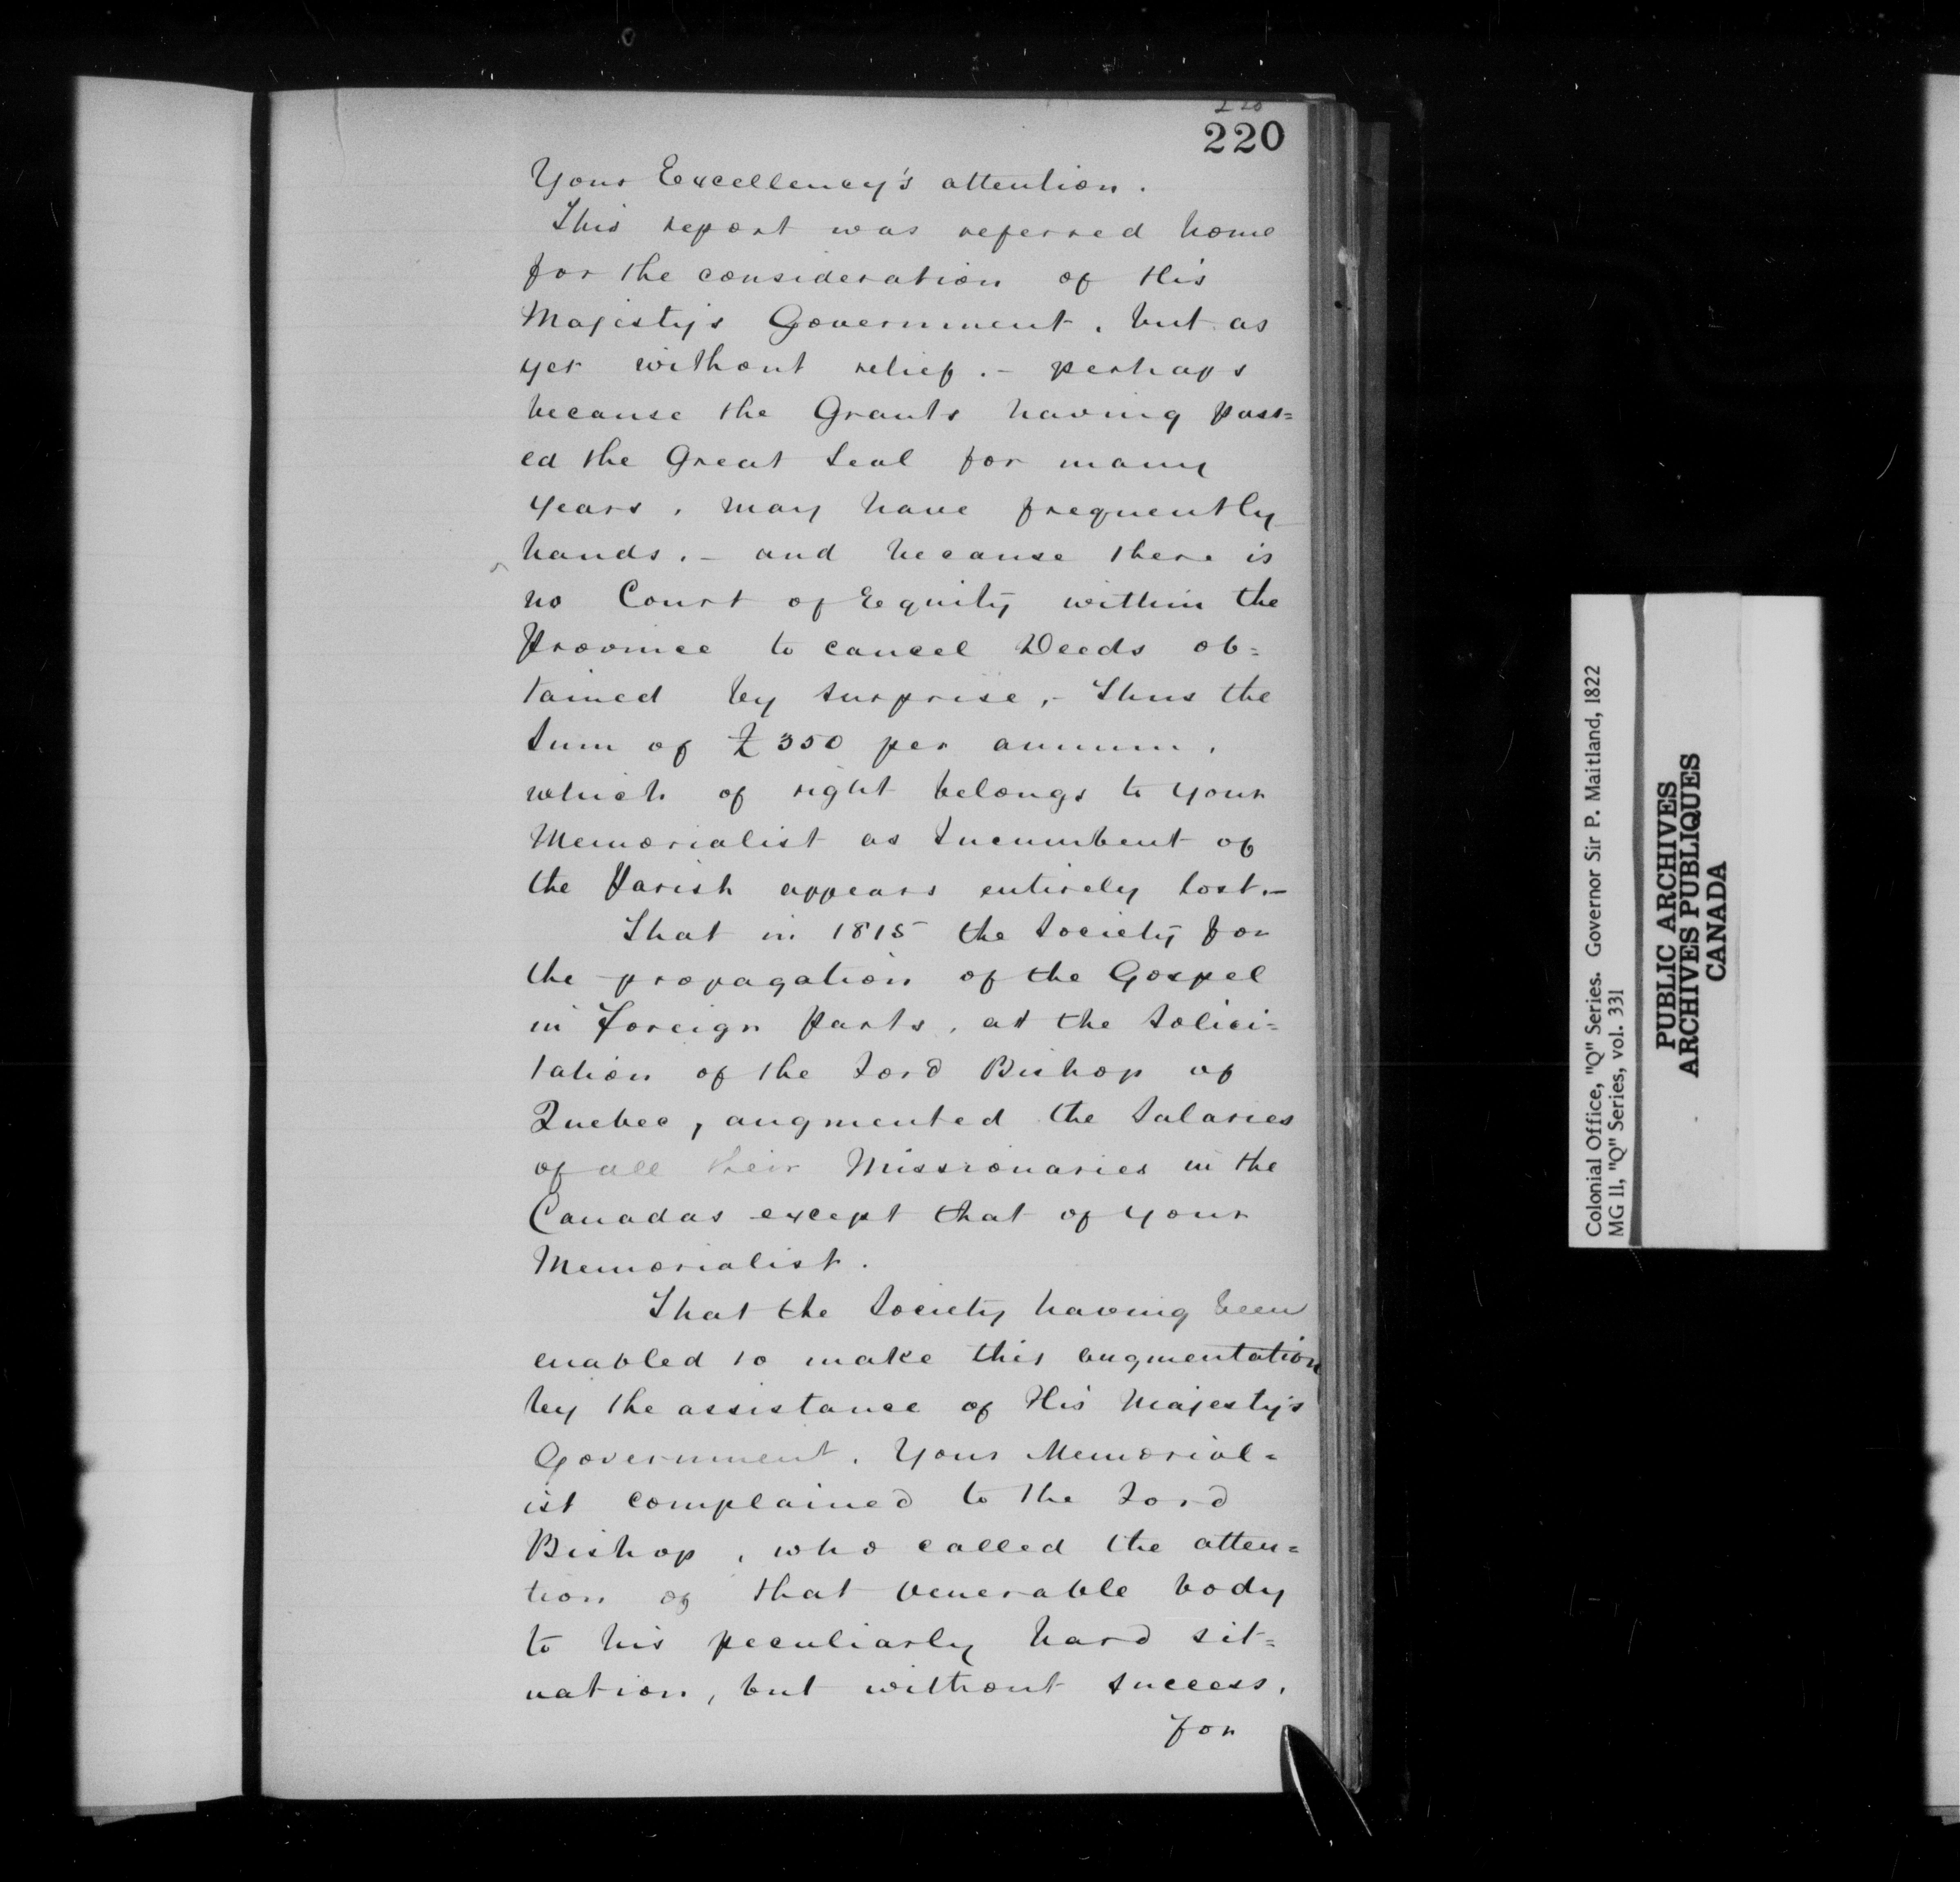 220
220
Your Excellency's attention.
This report was referred home
for the consideration of His
Majesty's Government, but as
yet without relief. - perhaps
because the Grants having pass=
ed the Great Seal for many
years, may have frequently
hands. - and because there is
no Court of Equity within the
Province to cancel Deeds ob=
tained by surprise, - Thus the
Sum of £350 per annum,
which of right belongs to your
Memorialist as Incumbent of
the Parish appears entirely lost. -
That in 1815 the Society for
the propagation of the Gospel
in Foreign Parts, at the Solici=
tation of the Lord Bishop of
Quebec, augmented the Salaries
of all their Missionaries in the
Canadas except that of your
Memorialist.
That the Society having been
enabled to make this augmentation
by the assistance of His Majesty's
Government, Your Memorial=
ist complained to the Lord
Bishop, who called the atten=
tion of that venerable body
to his peculiarly hard sit=
uation, but without success,
for
Colonial Office, "Q" Series. Governor Sir P. Maitland, 1822
MG 11, "Q" Series, vol. 331
PUBLIC ARCHIVES
ARCHIVES PUBLIQUES
CANADA